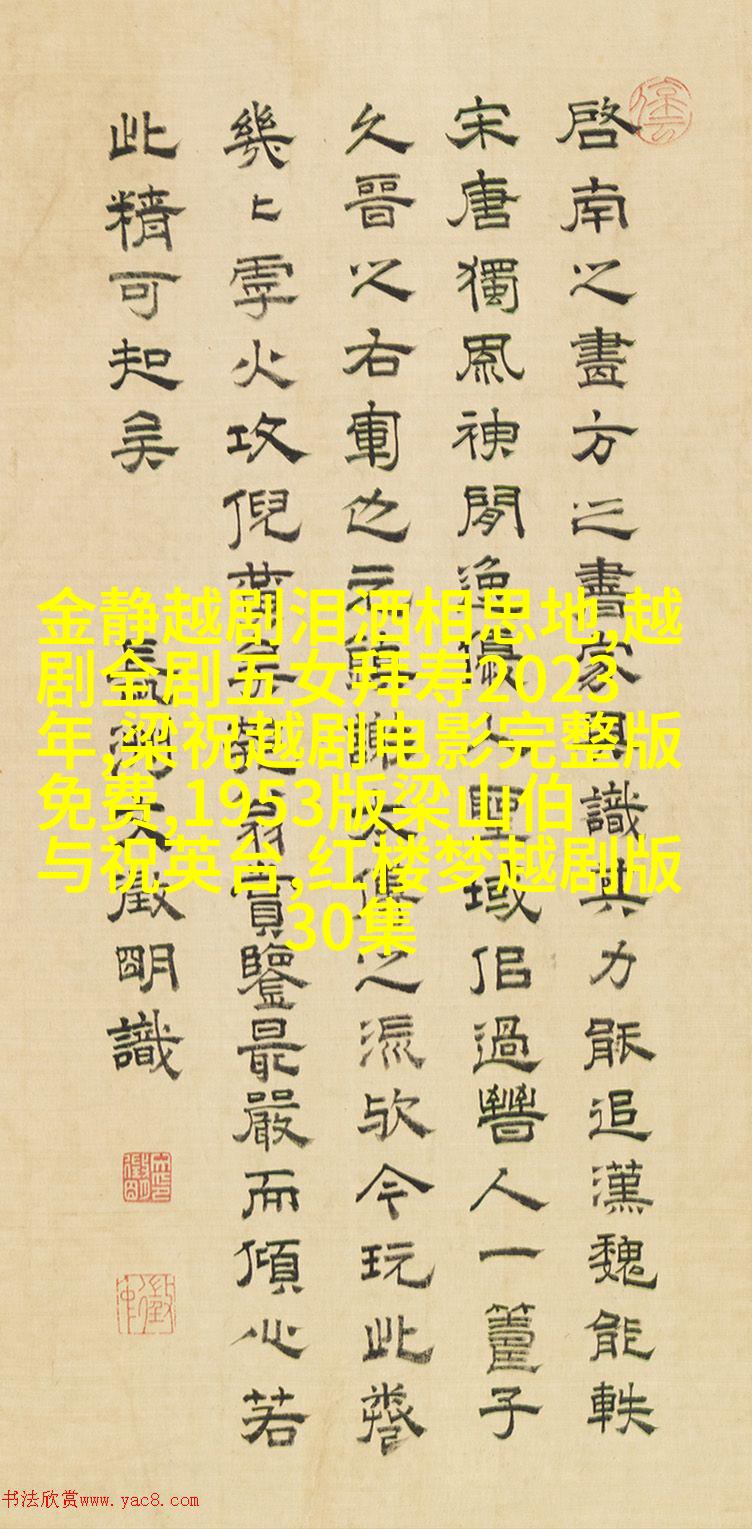 啓南之畫方之書家具識其力追漢魏能軼
宋唐獨神閒逸人聖域侶過人一籌子
久晉之右軍也元之流歟今玩此卷
幾火攻倪翁賞鑒最嚴而傾心若
此精可知矣
長洲文徵明識
金静越剧泪洒相思地,越
剧全剧五女拜寿2023
年,梁祝越剧电影完整版
免费,1953版梁山伯
与祝英台,红楼梦越剧版
30集
书法欣赏www.yac8.com